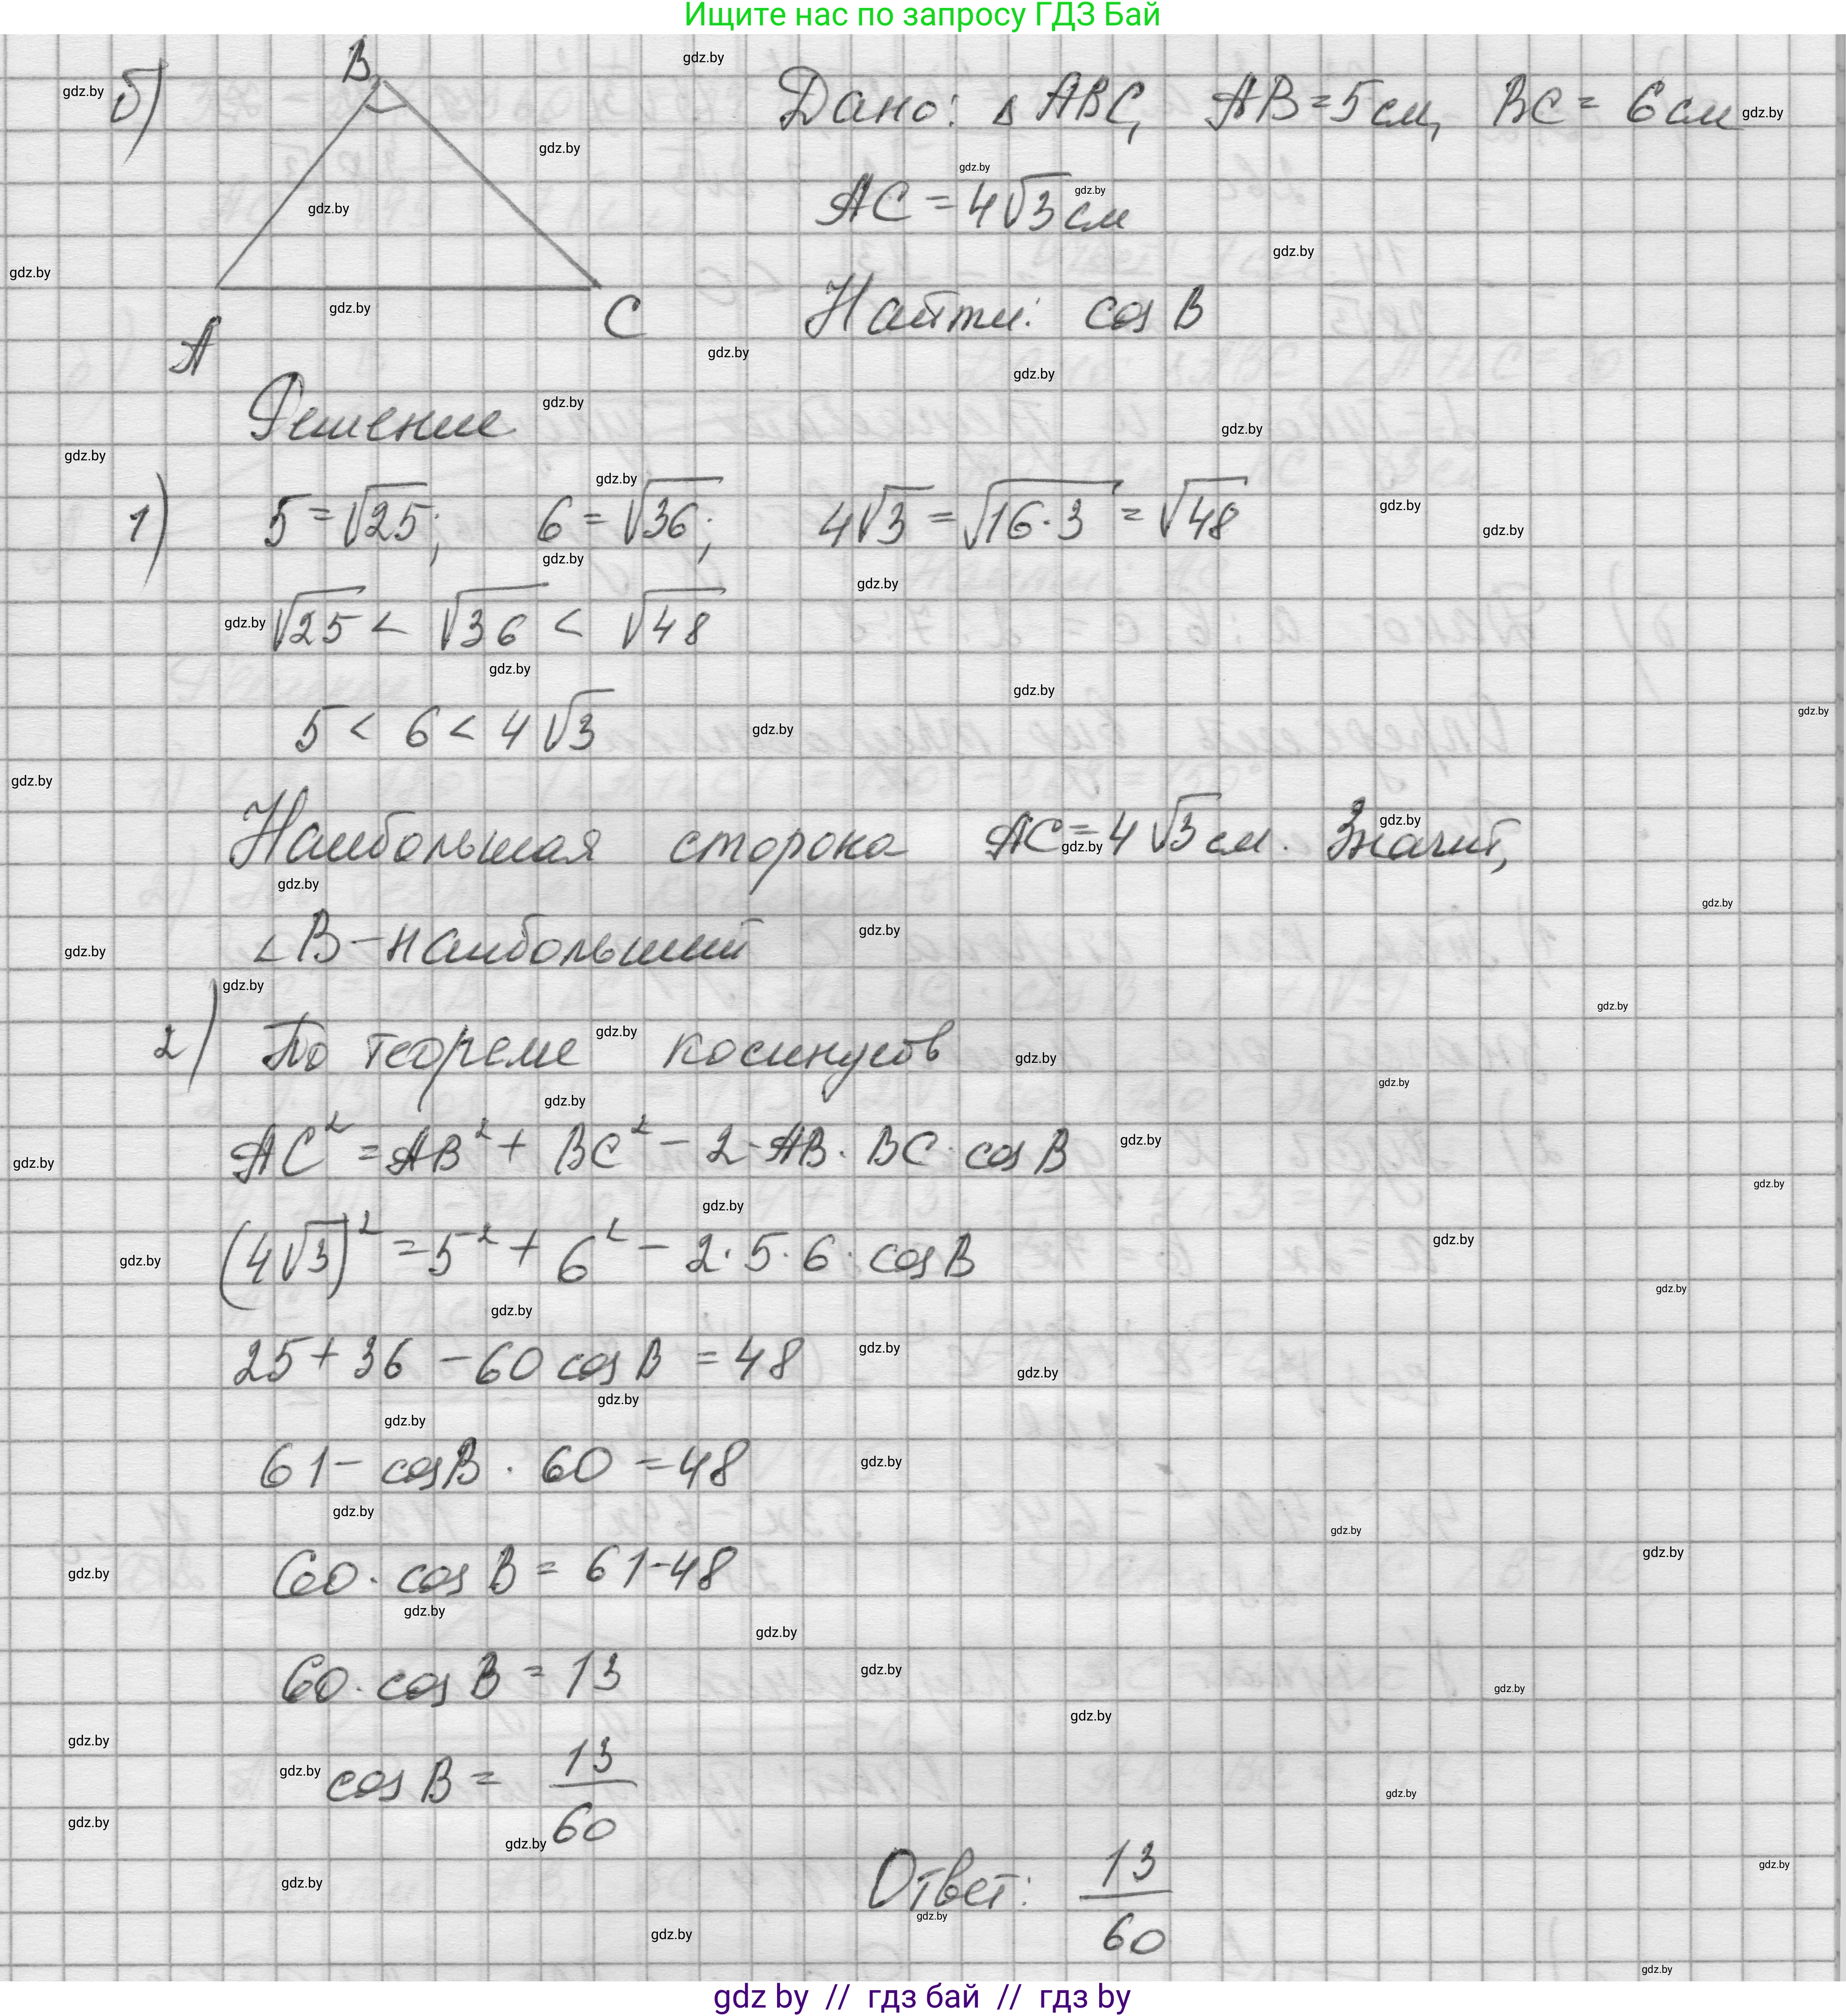 Ищите нас по запросу ГДЗ Бай
б)
B
A
C
Дано: △ ABC, AB = 5 см, BC = 6 см
AC = 4√3 см
Найти: cos B
Решение
1) 5 = √25; 6 = √36; 4√3 = √16·3 = √48
√25 < √36 < √48
5 < 6 < 4√3
Наибольшая сторона AC = 4√3 см. Значит,
∠B – наибольший
2) По теореме косинусов
AC² = AB² + BC² − 2·AB·BC·cos B
(4√3)² = 5² + 6² − 2·5·6·cos B
25 + 36 − 60 cos B = 48
61 − cos B · 60 = 48
60 · cos B = 61 − 48
60 · cos B = 13
cos B = 13/60
Ответ: 13/60
gdz by // гдз бай // гдз by